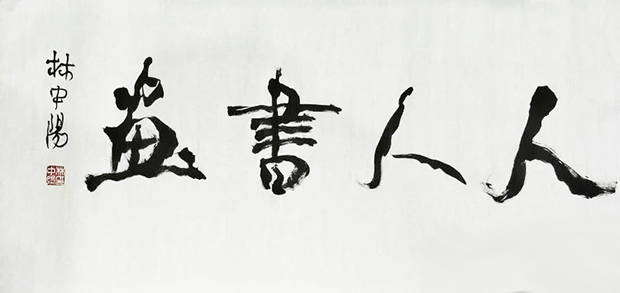 人人書畫
林中陽